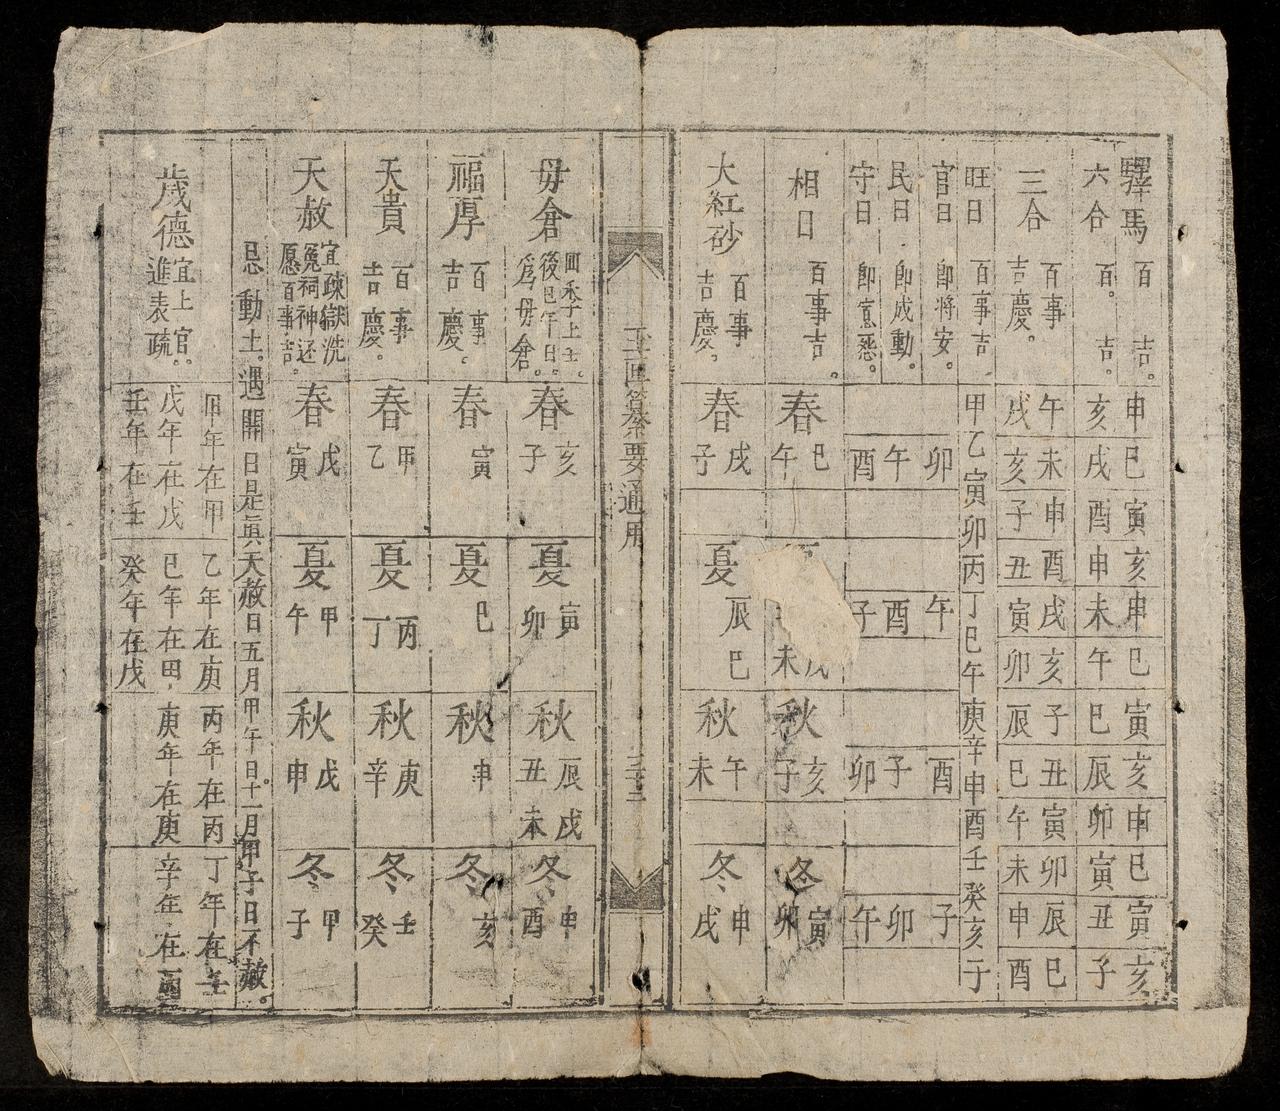 驛馬 百吉。 申 巳 寅 亥 申 巳 寅 亥 申 巳 寅 亥
六合 百。吉。 亥 戌 酉 申 未 午 巳 辰 卯 寅 丑 子
三合 百事吉慶。 午戌 未亥 申子 酉丑 戌寅 亥卯 子辰 丑巳 寅午 卯未 辰申 巳酉
旺日 百事吉 甲乙寅卯 丙丁巳午 庚辛申酉 壬癸亥子
官日 即將安。 卯 午 酉 子
民日 即成動。 午 酉 子 卯
守日 酉 子 卯 午
相日 百事吉。 春 巳午 秋 亥子 冬 寅卯
大紅砂 百事吉慶。 春 戌子 夏 辰巳 秋 午未 冬 申戌
玉匣纂要 通用
母倉 後巳午日。爲母倉。 春 亥子 夏 寅卯 秋 辰戌丑未 冬 申酉
福厚 百事吉慶。 春 寅 夏 巳 秋 申 冬 亥
天貴 百事吉慶。 春 甲乙 夏 丙丁 秋 庚辛 冬 壬癸
天赦 宜疎獄洗冤祠神还愿百事吉。 春 戊寅 夏 甲午 秋 戊申 冬 甲子
忌動土。遇開日是眞天赦日五月甲午日十一月甲子日不赦。
歲德 宜上官。進表疏。 甲年在甲 乙年在庚 丙年在丙 丁年在壬
戊年在戊 巳年在甲 庚年在庚 辛年在丙
壬年在壬 癸年在戊